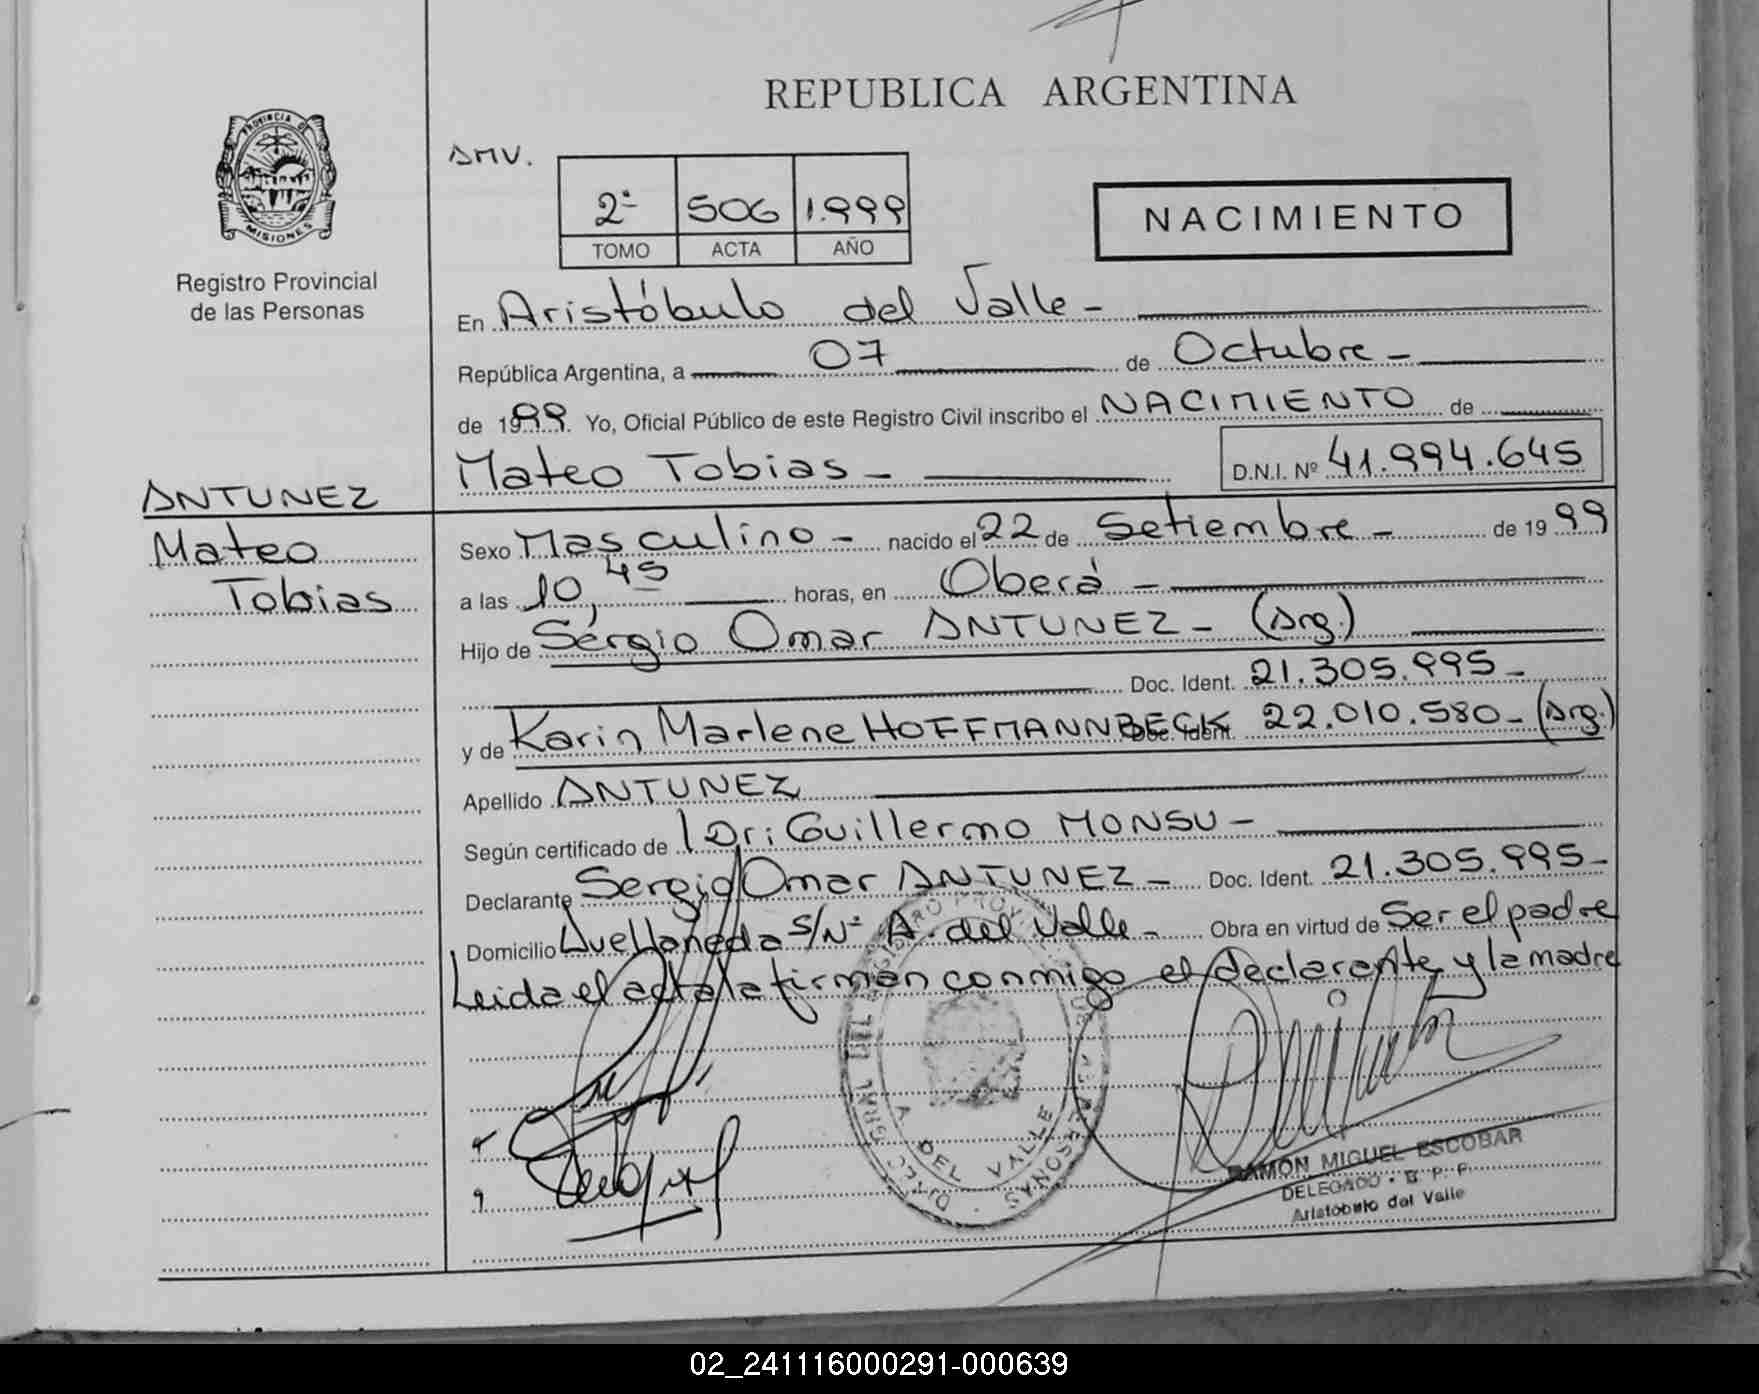 REPUBLICA ARGENTINA
PROVINCIA DE
MISIONES
Registro Provincial
de las Personas
AMV.
2ª 506 1.999
TOMO ACTA AÑO
NACIMIENTO
En Aristóbulo del Valle -
República Argentina, a 07 de Octubre -
de 1999. Yo, Oficial Público de este Registro Civil inscribo el NACIMIENTO de
Mateo Tobias - D.N.I. Nº 41.994.645
ANTUNEZ
Mateo
Tobias
Sexo Masculino - nacido el 22 de Setiembre - de 1999
a las 10,45 horas, en Oberá -
Hijo de Sergio Omar ANTUNEZ - (Arg.)
Doc. Ident. 21.305.995 -
y de Karin Marlene HOFFMANNBECK Doc. Ident. 22.010.580 - (Arg.)
Apellido ANTUNEZ
Según certificado de Guillermo MONSU -
Declarante Sergio Omar ANTUNEZ - Doc. Ident. 21.305.995 -
Domicilio Avellaneda S/Nº A. del Valle - Obra en virtud de Ser el padre
Leida el acta la firman conmigo el declarante y la madre
A DEL VALLE
RAMON MIGUEL ESCOBAR
DELEGADO
Aristóbulo del Valle
02_241116000291-000639